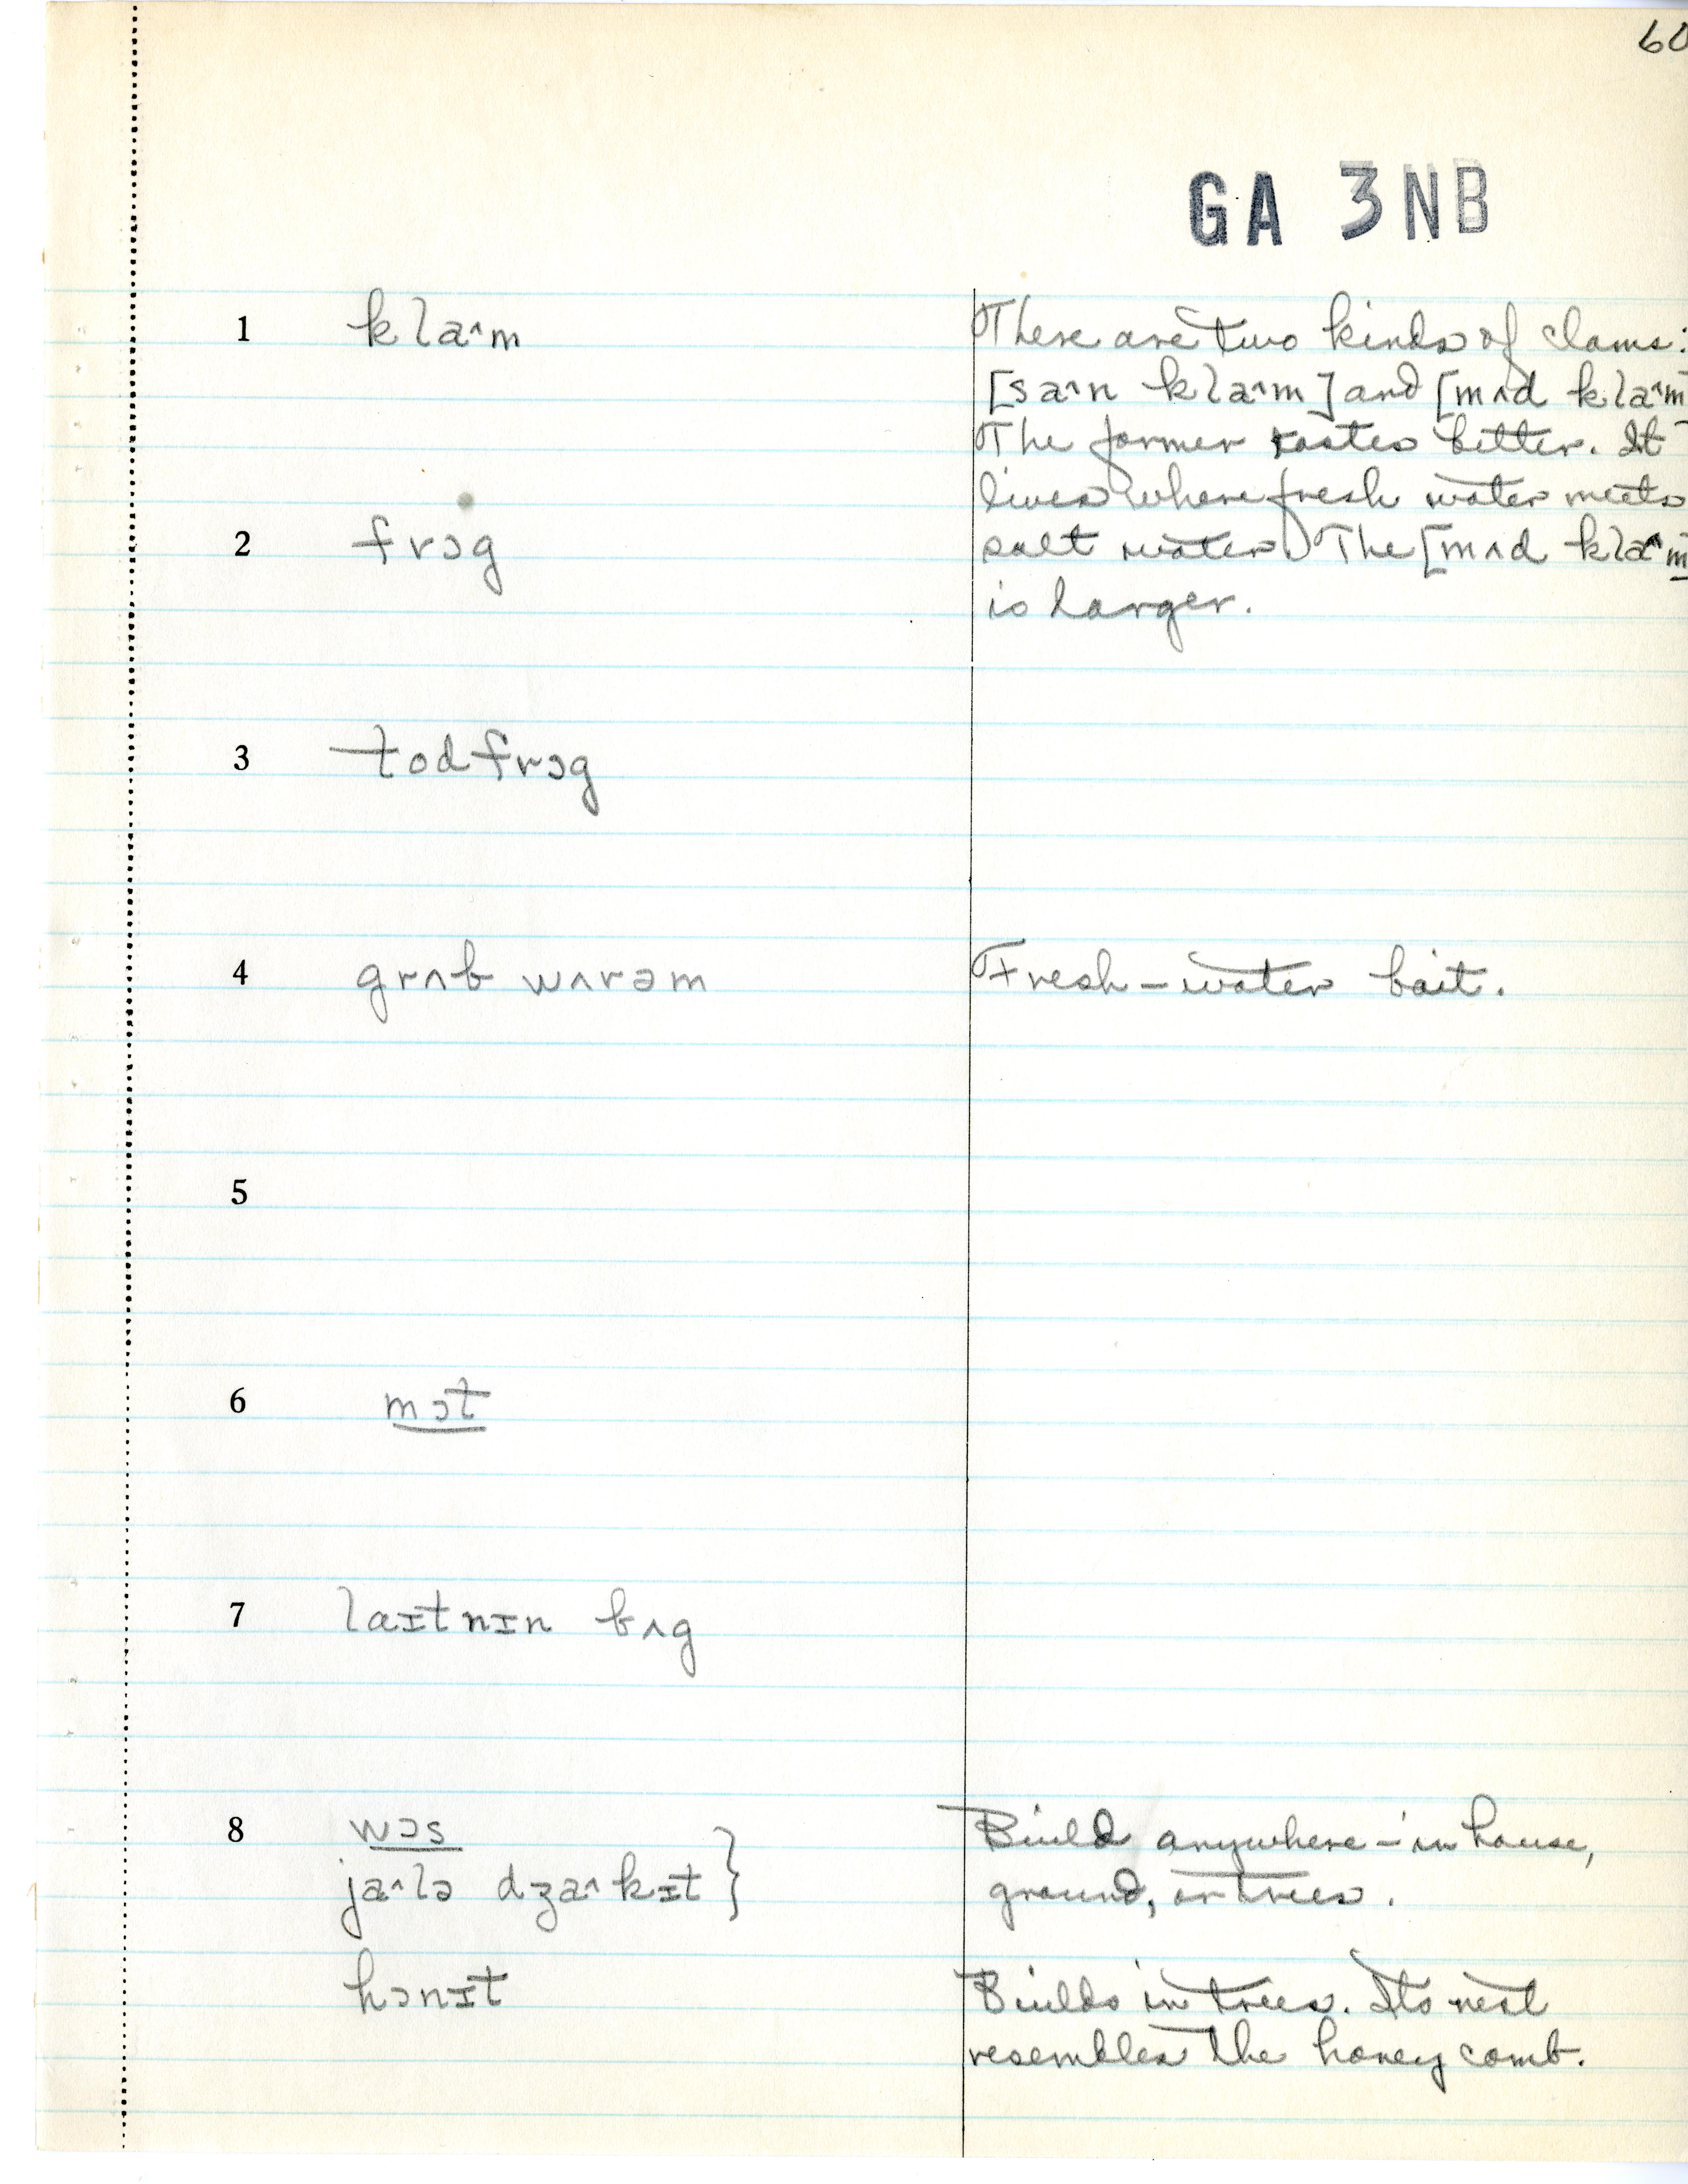 60
GA 3NB
1 kla^m
There are two kinds of clams:
[sa^n kla^m] and [mʌd kla^m]
The former tastes better. It
lives where fresh water meets
2 frɔg
salt water. The [mʌd kla^m]
is larger.
3 todfrɔg
4 grʌb wʌrəm
Fresh-water bait.
5
6 mɔt
7 laɪtnɪn bʌg
8 wɔs
Build anywhere - in house,
ja^lə dʒa^kɪt }
ground, or trees.
hɔnɪt
Builds in trees. Its nest
resembles the honey comb.